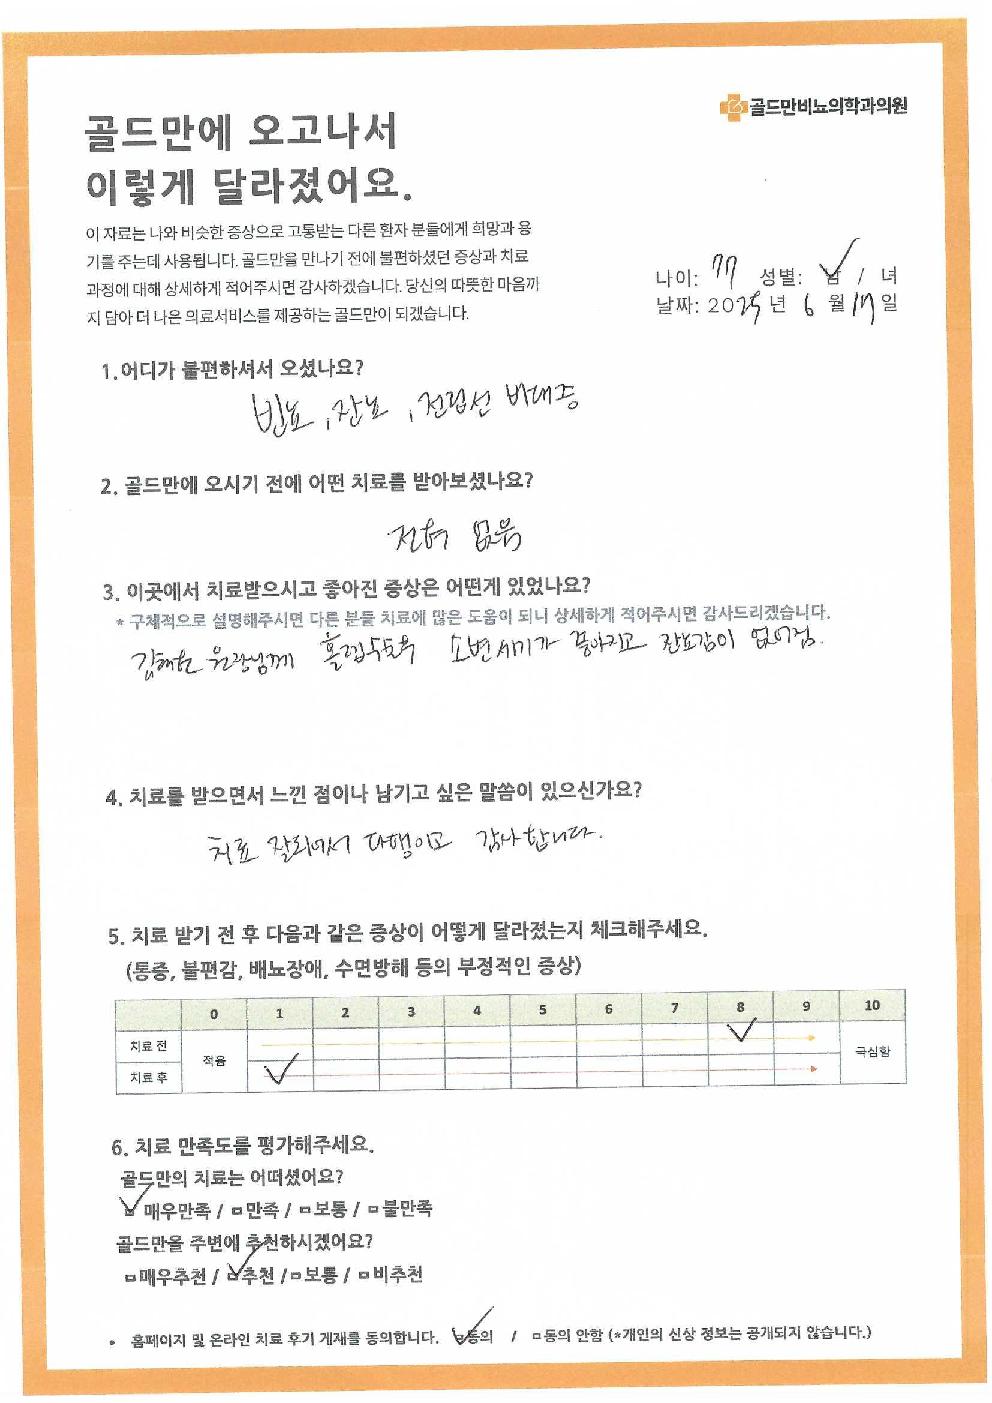 골드만비뇨의학과의원
골드만에 오고나서
이렇게 달라졌어요.
이 자료는 나와 비슷한 증상으로 고통받는 다른 환자 분들에게 희망과 용
기를 주는데 사용됩니다. 골드만을 만나기 전에 불편하셨던 증상과 치료
과정에 대해 상세하게 적어주시면 감사하겠습니다. 당신의 따뜻한 마음까
지 담아 더 나은 의료서비스를 제공하는 골드만이 되겠습니다.
나이: 77 성별: 남 / 녀
날짜: 2025년 6월 17일
1.어디가 불편하셔서 오셨나요?
빈뇨, 잔뇨, 전립선 비대증
2. 골드만에 오시기 전에 어떤 치료를 받아보셨나요?
전혀 없음
3. 이곳에서 치료받으시고 좋아진 증상은 어떤게 있었나요?
* 구체적으로 설명해주시면 다른 분들 치료에 많은 도움이 되니 상세하게 적어주시면 감사드리겠습니다.
원장님께 홀렙수술후 소변세기가 좋아지고 잔뇨감이 없어짐.
4. 치료를 받으면서 느낀 점이나 남기고 싶은 말씀이 있으신가요?
치료 잘되어서 다행이고 감사합니다.
5. 치료 받기 전 후 다음과 같은 증상이 어떻게 달라졌는지 체크해주세요.
(통증, 불편감, 배뇨장애, 수면방해 등의 부정적인 증상)
0 1 2 3 4 5 6 7 8 9 10
치료 전
적음 극심함
치료 후
6. 치료 만족도를 평가해주세요.
골드만의 치료는 어떠셨어요?
매우만족 / □만족 / □보통 / □불만족
골드만을 주변에 추천하시겠어요?
□매우추천 / □추천 / □보통 / □비추천
• 홈페이지 및 온라인 치료 후기 게재를 동의합니다. □동의 / □동의 안함 (*개인의 신상 정보는 공개되지 않습니다.)